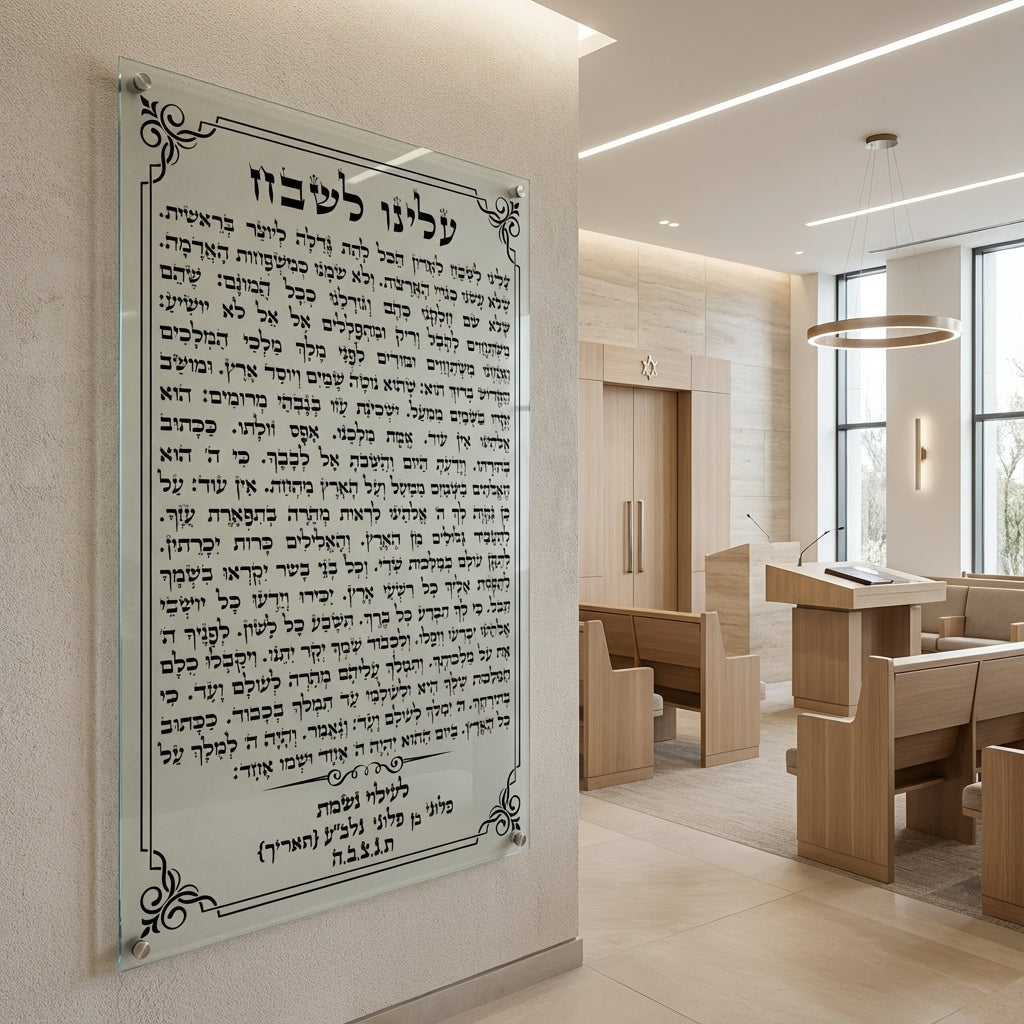 עלינו לשבח
עָלֵינוּ לְשַׁבֵּחַ לַאֲדוֹן הַכֹּל לָתֵת גְּדֻלָּה לְיוֹצֵר בְּרֵאשִׁית.
שֶׁלֹּא עָשָׂנוּ כְּגוֹיֵי הָאֲרָצוֹת. וְלֹא שָׂמָנוּ כְּמִשְׁפְּחוֹת הָאֲדָמָה.
שֶׁלֹּא שָׂם חֶלְקֵנוּ כָּהֶם וְגוֹרָלֵנוּ כְּכָל הֲמוֹנָם: שֶׁהֵם
מִשְׁתַּחֲוִים לְהֶבֶל וְרִיק וּמִתְפַּלְּלִים אֶל אֵל לֹא יוֹשִׁיעַ:
וַאֲנַחְנוּ מִשְׁתַּחֲוִים וּמוֹדִים לִפְנֵי מֶלֶךְ מַלְכֵי הַמְּלָכִים
הַקָּדוֹשׁ בָּרוּךְ הוּא: שֶׁהוּא נוֹטֶה שָׁמַיִם וְיוֹסֵד אָרֶץ. וּמוֹשַׁב
יְקָרוֹ בַּשָּׁמַיִם מִמַּעַל. וּשְׁכִינַת עֻזּוֹ בְּגָבְהֵי מְרוֹמִים: הוּא
אֱלֹהֵינוּ אֵין עוֹד. אֱמֶת מַלְכֵּנוּ. אֶפֶס זוּלָתוֹ. כַּכָּתוּב
בְּתוֹרָתוֹ. וְיָדַעְתָּ הַיּוֹם וַהֲשֵׁבֹתָ אֶל לְבָבֶךָ. כִּי ה' הוּא
הָאֱלֹהִים בַּשָּׁמַיִם מִמַּעַל וְעַל הָאָרֶץ מִתָּחַת. אֵין עוֹד: עַל
כֵּן נְקַוֶּה לְךָ ה' אֱלֹהֵינוּ לִרְאוֹת מְהֵרָה בְּתִפְאֶרֶת עֻזֶּךָ.
לְהַעֲבִיר גִּלּוּלִים מִן הָאָרֶץ. וְהָאֱלִילִים כָּרוֹת יִכָּרֵתוּן.
לְתַקֵּן עוֹלָם בְּמַלְכוּת שַׁדַּי. וְכָל בְּנֵי בָשָׂר יִקְרְאוּ בִשְׁמֶךָ
לְהַפְנוֹת אֵלֶיךָ כָּל רִשְׁעֵי אָרֶץ. יַכִּירוּ וְיֵדְעוּ כָּל יוֹשְׁבֵי
תֵבֵל. כִּי לְךָ תִּכְרַע כָּל בֶּרֶךְ. תִּשָּׁבַע כָּל לָשׁוֹן. לְפָנֶיךָ ה'
אֱלֹהֵינוּ יִכְרְעוּ וְיִפֹּלוּ. וְלִכְבוֹד שִׁמְךָ יְקָר יִתֵּנוּ. וִיקַבְּלוּ כֻלָּם
אֶת עֹל מַלְכוּתֶךָ. וְתִמְלֹךְ עֲלֵיהֶם מְהֵרָה לְעוֹלָם וָעֶד. כִּי
הַמַּלְכוּת שֶׁלְּךָ הִיא וּלְעוֹלְמֵי עַד תִּמְלֹךְ בְּכָבוֹד. כַּכָּתוּב
בְּתוֹרָתֶךָ. ה' יִמְלֹךְ לְעוֹלָם וָעֶד: וְנֶאֱמַר. וְהָיָה ה' לְמֶלֶךְ עַל
כָּל הָאָרֶץ. בַּיּוֹם הַהוּא יִהְיֶה ה' אֶחָד וּשְׁמוֹ אֶחָד:
לעילוי נשמת
פלוני בן פלוני נלב"ע {תאריך}
ת.נ.צ.ב.ה